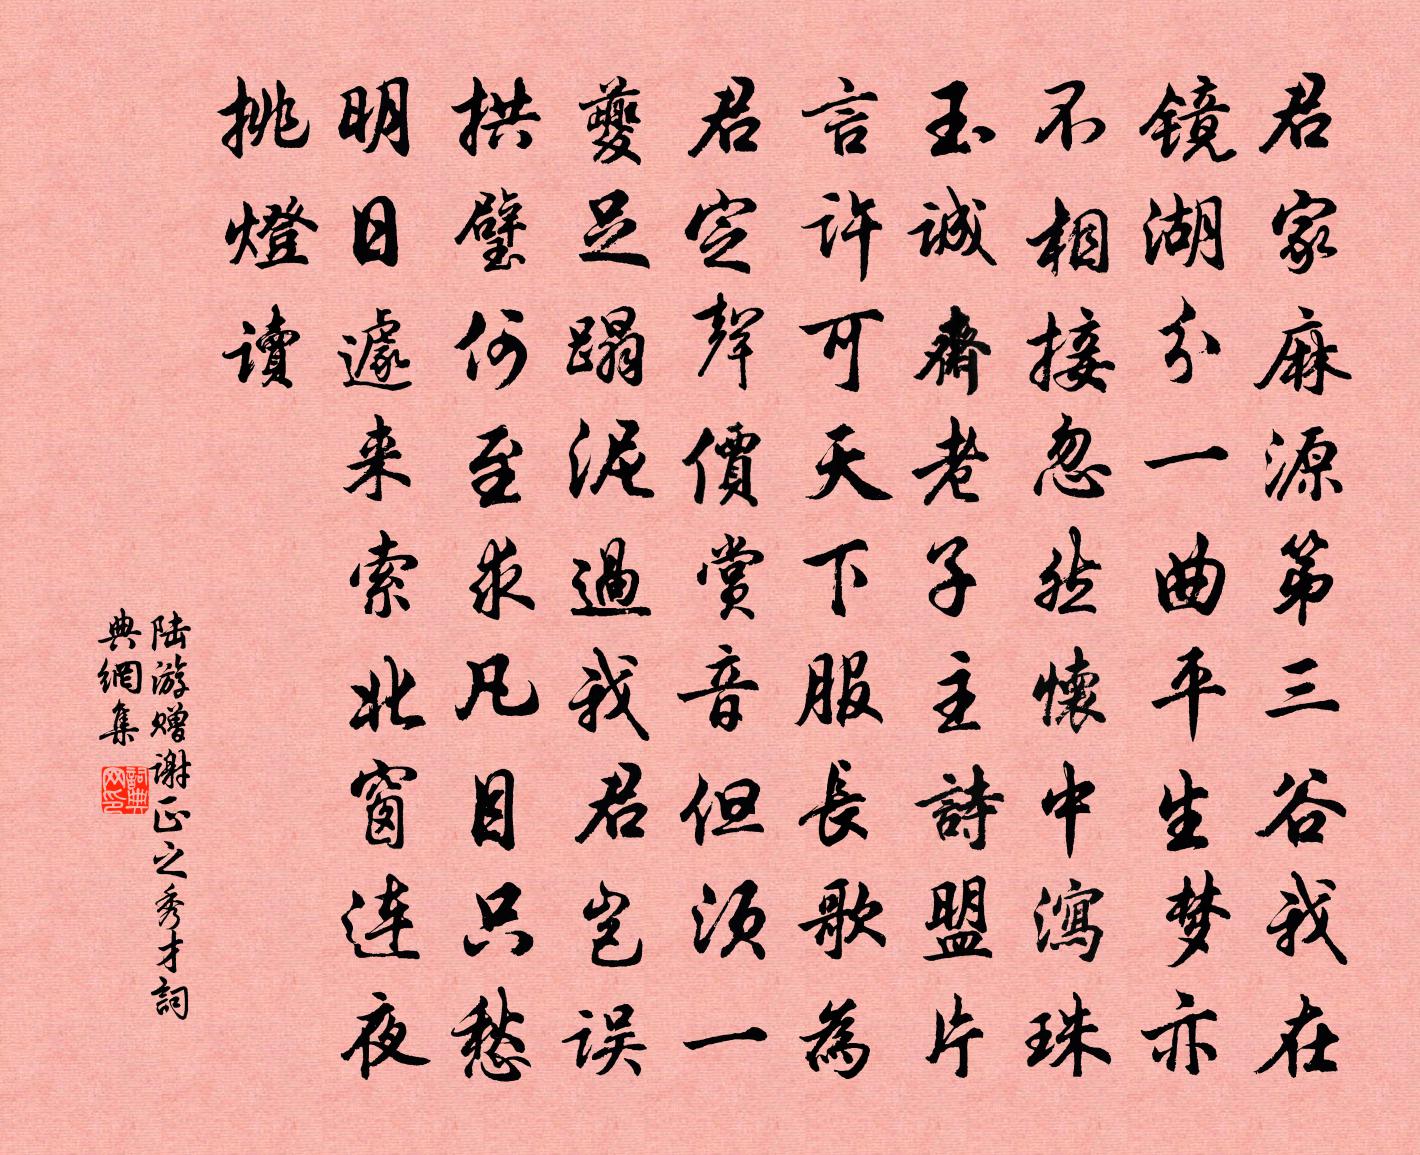 君家麻源第三谷我在
镜湖分一曲平生梦亦
不相接忽然懷中瀉珠
玉誠齋老子主詩盟片
言許可天下服長歌為
君定聲價賞音但须一
夔足蹋泥過我君岂误
拱璧何至求凡目只愁
明日遽来索北窗连夜
挑燈讀
陆游赠谢正之秀才詞
典網集
詞典
网印